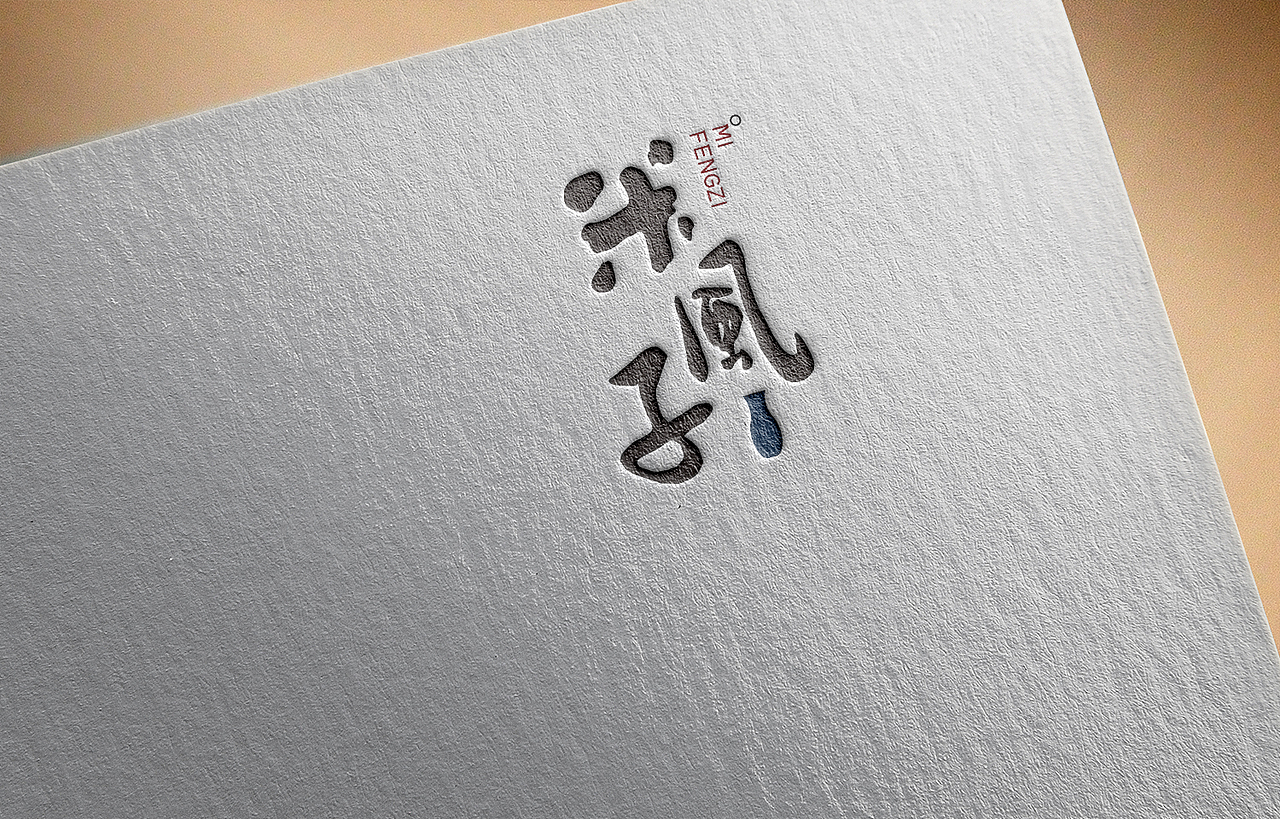 米
鳳
子
MI
FENGZI